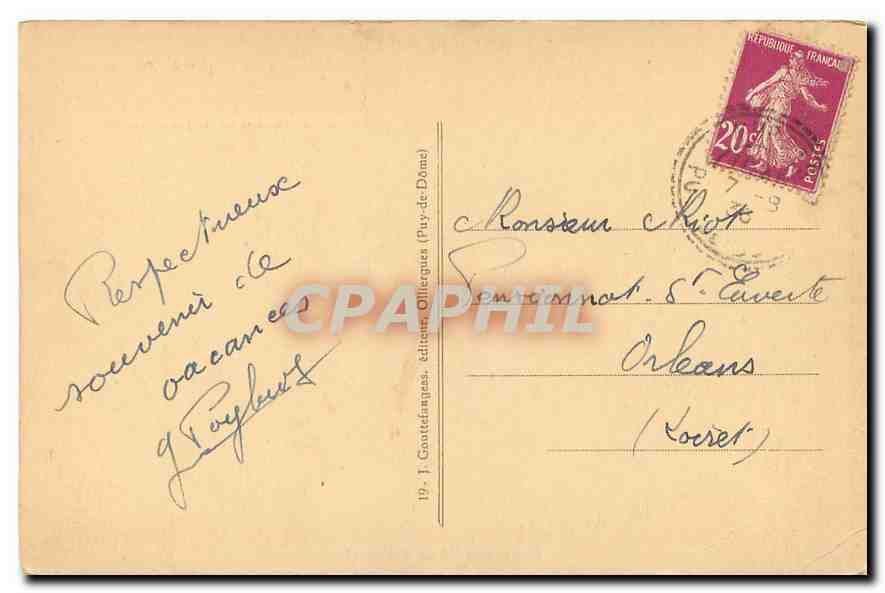 Respectueux
souvenir de
vacances
19 - J. Gouttefangeas, éditeur, Olliergues (Puy-de-Dôme)
RÉPUBLIQUE FRANÇAISE
20c
POSTES
Monsieur Riot
Pensionnat St-Euverte
Orléans
(Loiret)
CPAPHIL